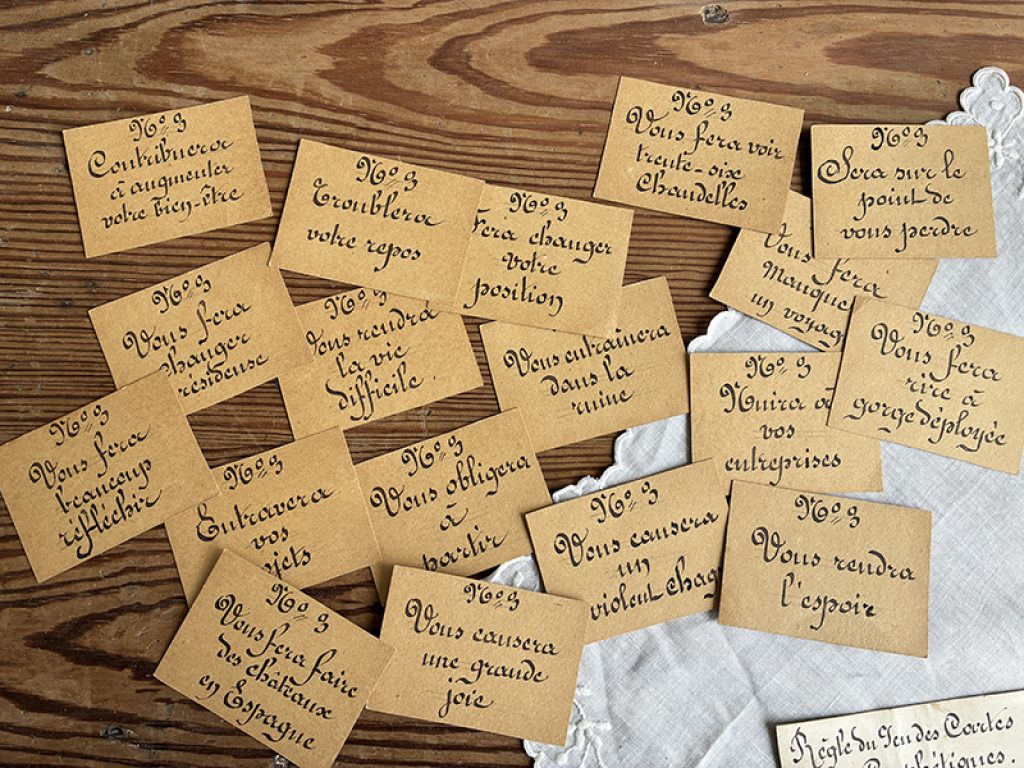 No 3
Contribuera
à augmenter
votre bien-être
No 3
Troublera
votre repos
No 3
Fera changer
votre
position
No 3
Vous fera voir
trente-six
chandelles
No 3
Sera sur le
point de
vous perdre
Vous fera
manque
un voyag
No 3
Vous fera
changer
résidense
No 3
Vous rendra
la vie
difficile.
Vous entraînera
dans la
ruine
No 3
Nuira à
vos
entreprises
No 3
Vous fera
rire à
gorge déployée
No 3
Vous fera
beaucoup
réfléchir
No 3
Entravera
vos
jets
No 3
Vous obligera
à
partir
No 3
Vous causera
un
violent chag
No 3
Vous rendra
l'espoir
No 3
Vous fera faire
des châteaux
en Espagne
No 3
Vous causera
une grande
joie
Règle du Jeu des Cartes